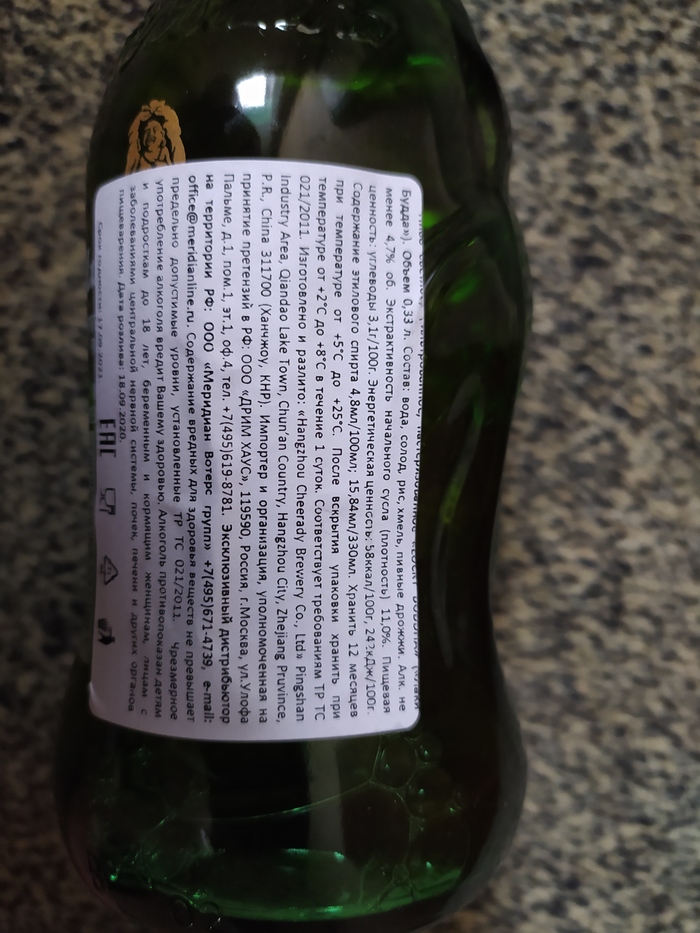 Будда»). Объем 0,33 л. Состав: вода, солод, рис, хмель, пивные дрожжи. Алк. не
менее 4,7% об. Экстрактивность начального сусла (плотность) 11,0%. Пищевая
ценность: углеводы 3,1г/100г. Энергетическая ценность: 58ккал/100г, кДж/100г.
Содержание этилового спирта 4,8мл/100мл; 15,84мл/330мл. Хранить 12 месяцев
при температуре от +5°С до +25°С. После вскрытия упаковки хранить при
температуре от +2°С до +8°С в течение 1 суток. Соответствует требованиям ТР ТС
021/2011. Изготовлено и разлито: «Hangzhou Cheerady Brewery Co., Ltd» Pingshan
Industry Area, Qiandao Lake Town, Chun'an Country, Hangzhou City, Zhejiang Pruvince,
P.R., China 311700 (Ханчжоу, КНР). Импортер и организация, уполномоченная на
принятие претензий в РФ: ООО «ДРИМ ХАУС», 119590, Россия, г.Москва, ул.Улофа
Пальме, д.1, пом.1, эт.1, оф.4, тел. +7(495)619-8781. Эксклюзивный дистрибьютор
на территории РФ: ООО «Меридиан Вотерс групп» +7(495)671-4739, e-mail:
office@meridianline.ru. Содержание вредных для здоровья веществ не превышает
предельно допустимые уровни, установленные ТР ТС 021/2011. Чрезмерное
употребление алкоголя вредит Вашему здоровью. Алкоголь противопоказан детям
и подросткам до 18 лет, беременным и кормящим женщинам, лицам с
заболеваниями центральной нервной системы, почек, печени и других органов
пищеварения. Дата розлива: 18.09.2020.
Срок годности: 17.09.2021
EAC